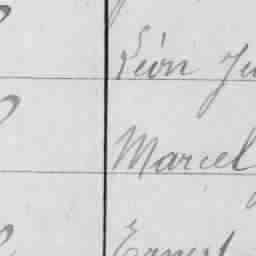 Léon
Marcel
Ernest